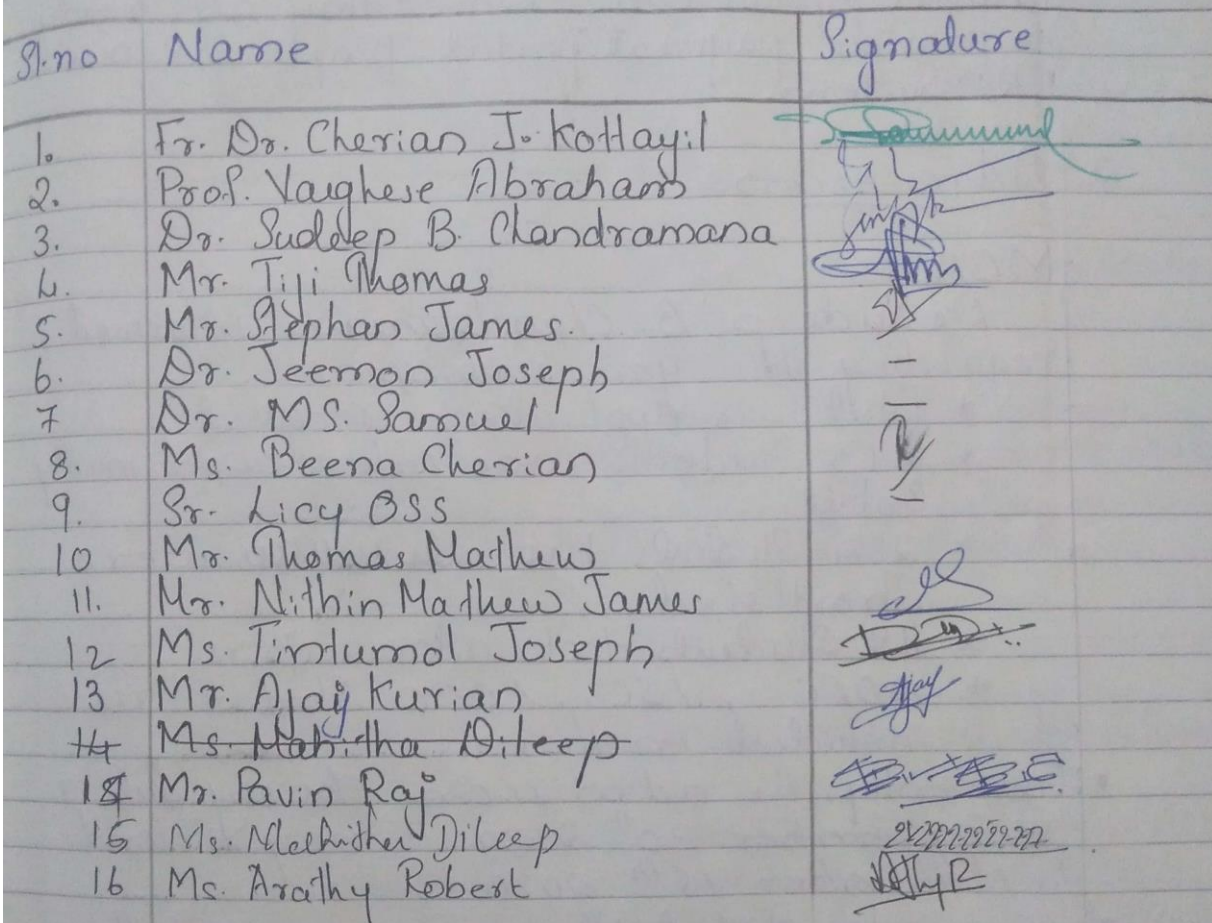 Sl.no Name Signadure
1. Fr. Dr. Cherian J. Kottayil
2. Prof. Varghese Abraham
3. Dr. Suddep B. Chandramana
4. Mr. Tiji Thomas
5. Mr. Stephan James.
6. Dr. Jeemon Joseph –
7 Dr. MS. Samuel –
8. Ms. Beena Cherian
9. Sr. Licy OSS –
10 Mr. Thomas Mathew
11. Mr. Nithin Mathew James
12 Ms. Tintumol Joseph
13 Mr. Ajay Kurian Ajay
14 Ms. Mahitha Dileep
Mr. Pavin Raj
15 Ms. Dileep
16 Ms. Arathy Robert